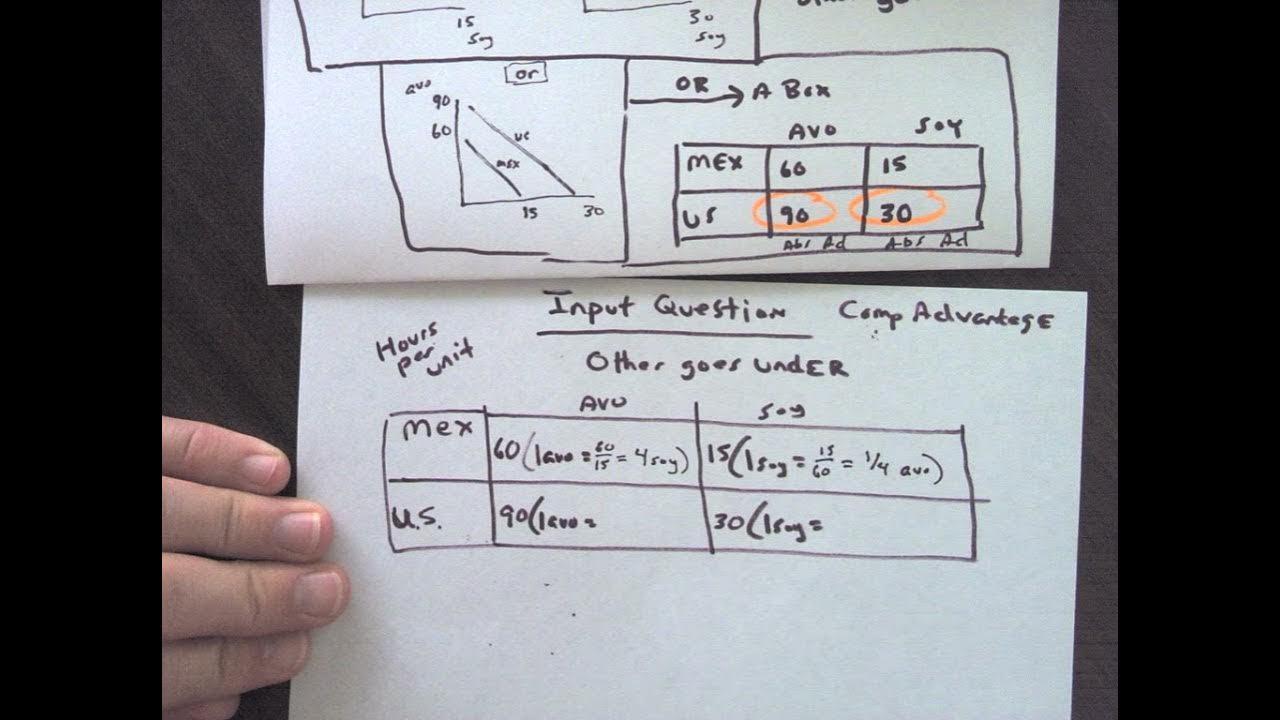 15
soy
30
soy
or
avo
90
60
US
mex
15
30
OR → A Box
AVO SOY
MEX 60 15
US 90 30
Abs Ad Abs Ad
Input Question Comp Advantage
Hours
per
unit
Other goes undER
AVO soy
mex 60 (1avo = 60/15 = 4soy) 15 (1soy = 15/60 = 1/4 avo)
U.S. 90 (1avo = 30 (1soy =